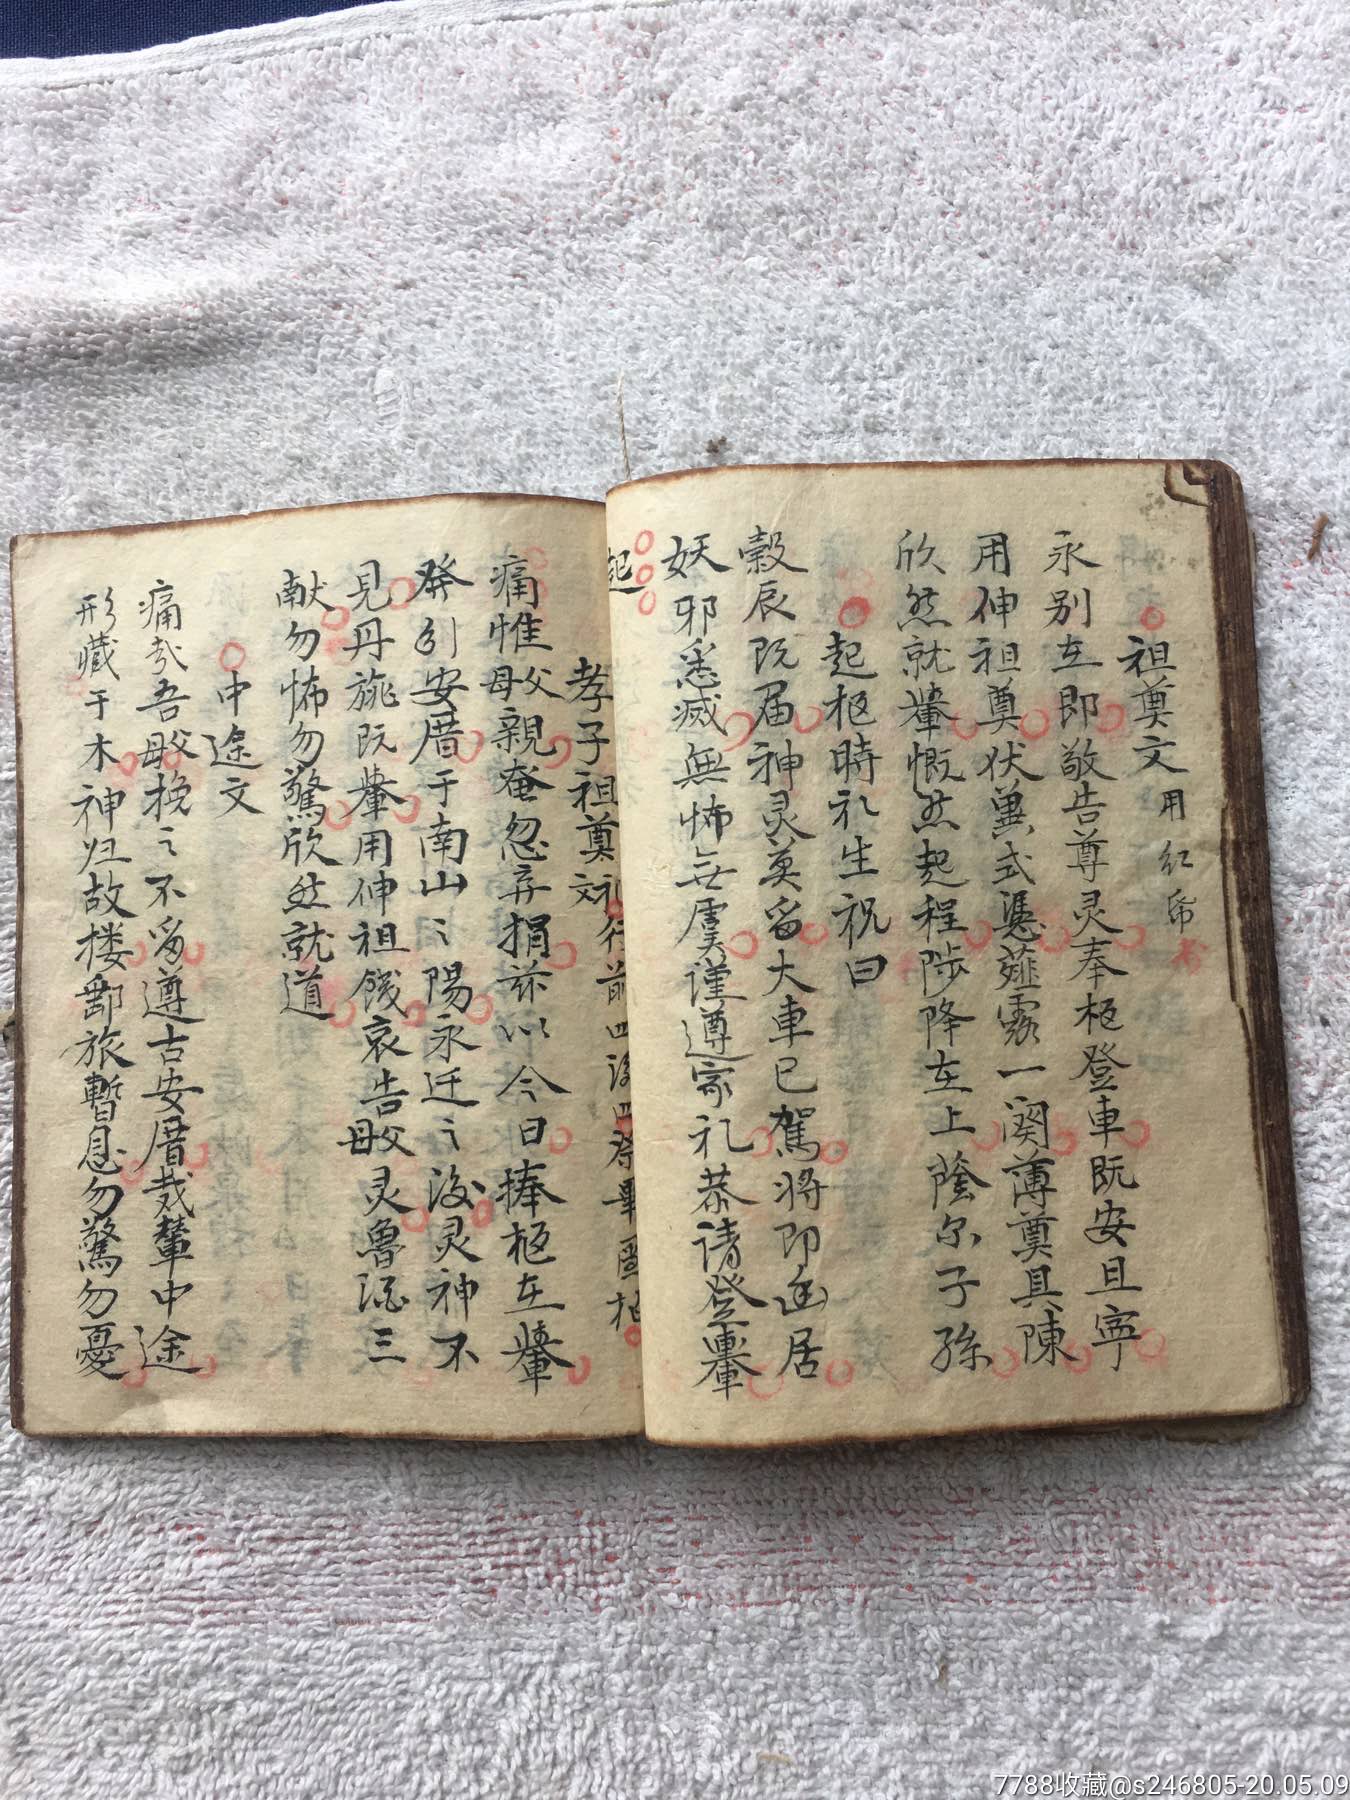 祖奠文用紅帋书
永别在即敬告尊灵奉柩登車既安且寕
用伸祖奠伏兾式憑薤露一闋薄奠具陳
欣然就輦慨然起程陟降在上蔭尔子孫
起柩時礼生祝曰
穀辰既届神灵莫留大車已駕将即幽居
妖邪悉滅無怖無虞謹遵家礼恭请登轝
起
孝子祖奠文
行前四後四祭畢
痛惟父母親奄忽弃捐兹以今日捧柩在轝
發引安厝于南山之陽永迁之後灵神不
見丹旐既轝用伸祖餞哀告父母灵魯酒三
献勿怖勿驚欣然就道
中途文
痛哉吾父母挽之不留遵古安厝载輦中途
形藏于木神归故楼郵旅暫息勿驚勿憂
7788收藏@s246805-20.05.09